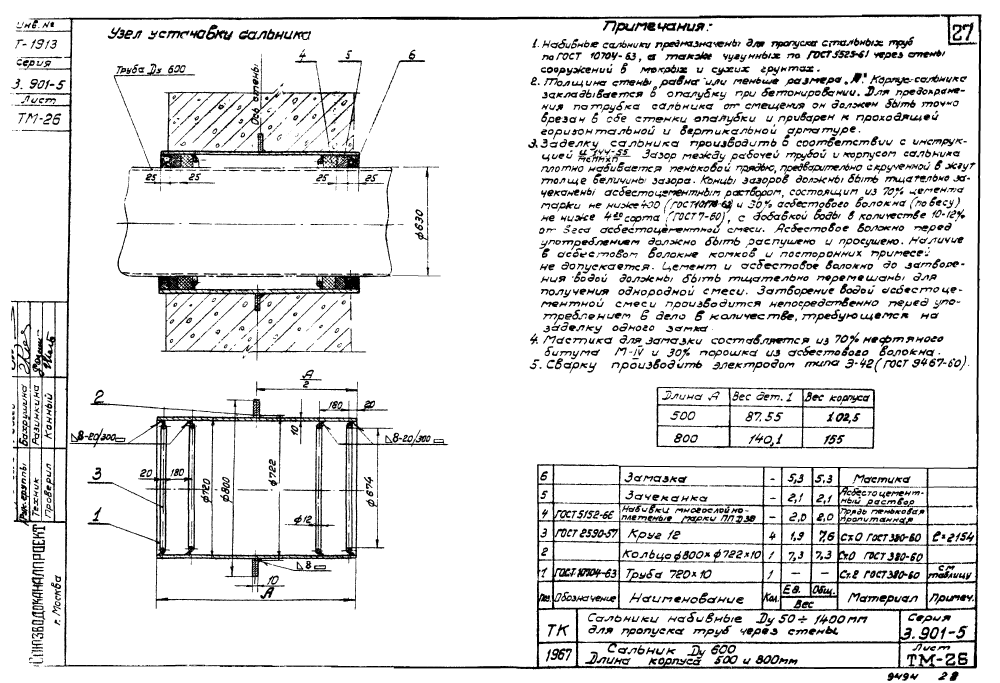 Инв. №
Т-1913
серия
3. 901-5
Лист
ТМ-26
Узел установки сальника
4
5
6
Труба Ду 600
Ось стены
25
25
25
25
ф630
А
2
2
180
20
10
8-20/300
8-20/300
20
180
ф720
ф800
ф722
ф674
ф12
3
1
8
10
А
Примечания:
27
1. Набивные сальники предназначены для пропуска стальных труб
по ГОСТ 10704-63, а также чугунных по ГОСТ 5525-61 через стены
сооружений в мокрых и сухих грунтах.
2. Толщина стены равна или меньше размера „А". Корпус сальника
закладывается в опалубку при бетонировании. Для предохране-
ния патрубка сальника от смещения он должен быть точно
врезан в обе стенки опалубки и приварен к проходящей
горизонтальной и вертикальной арматуре.
3. Заделку сальника производить в соответствии с инструк-
цией Зазор между рабочей трубой и корпусом сальника
плотно набивается пеньковой прядью, предварительно скрученной в жгут
толще величины зазора. Концы зазоров должны быть тщательно за-
чеканены асбестоцементным раствором, состоящим из 70% цемента
марки не ниже 400 (ГОСТ 10178-62) и 30% асбестового волокна (по весу)
не ниже 4го сорта (ГОСТ 7-60), с добавкой воды в количестве 10-12%
от веса асбестоцементной смеси. Асбестовое волокно перед
употреблением должно быть распушено и просушено. Наличие
в асбестовом волокне комков и посторонних примесей
не допускается. Цемент и асбестовое волокно до затворе-
ния водой должны быть тщательно перемешаны для
получения однородной смеси. Затворение водой асбестоце-
ментной смеси производится непосредственно перед упо-
треблением в дело в количестве, требующемся на
заделку одного замка.
4. Мастика для замазки составляется из 70% нефтяного
битума М-IV и 30% порошка из асбестового волокна.
5. Сварку производить электродом типа Э-42 (ГОСТ 9467-60).
Длина А Вес дет. 1 Вес корпуса
500 87.55 102,5
800 140,1 155
6 Замазка - 5,3 5,3 Мастика
5 Зачеканка - 2,1 2,1 Асбестоцемент-
ный раствор
4 ГОСТ 5152-66 Набивки многослойно-
плетеные марки ПП - 2,0 2,0 Прядь пеньковая
пропитанная
3 ГОСТ 2590-57 Круг 12 4 1,9 7,6 Ст.0 ГОСТ 380-60 ℓ=2154
2 Кольцо ф800×ф722×10 1 7,3 7,3 Ст.0 ГОСТ 380-60
1 ГОСТ 10704-63 Труба 720×10 1 — — Ст.2 ГОСТ 380-60 см
таблицу
Поз. Обозначение Наименование Кол. Ед. Общ. Вес Материал Примеч.
ТК
Сальники набивные Ду 50÷1400мм
для пропуска труб через стены
Серия
3.901-5
1967
Сальник Ду 600
Длина корпуса 500 и 800мм
Лист
ТМ-26
9494 28
Рук. группы Вахрушина
Техник Разинкина
Проверил Конный
СОЮЗВОДОКАНАЛПРОЕКТ
г. Москва